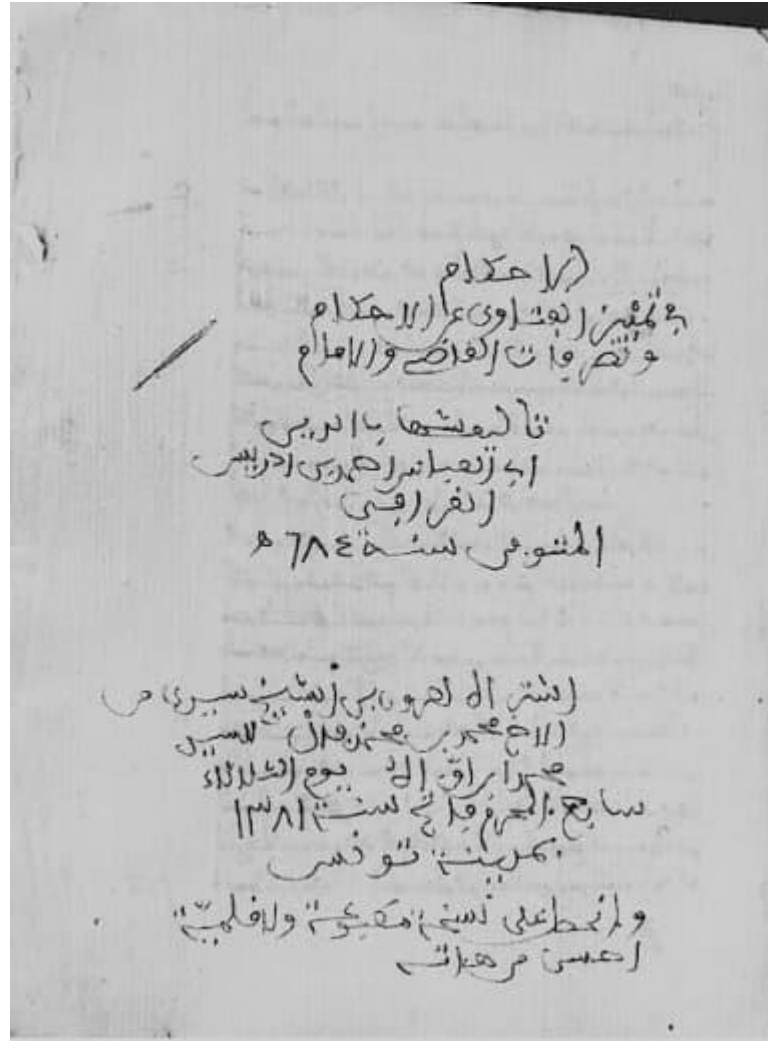 الاحكام
في تمييز الفتاوى عن الاحكام
وتصرفات القاضي والامام
تأليف شهاب الدين
ابي العباس احمد بن ادريس
القرافي
المتوفى سنة ٦٨٤ ه
اشتراه هرون بن الشيخ سيدي من
الاخ محمد بن محمذ فال للسيد
محمد يوم الثلاثاء
سابع المحرم فاتح سنة ١٣٨١
بمدينة تونس
ولم نحط على نسخة مطبوعة ولا قلمية
احسن من هاته